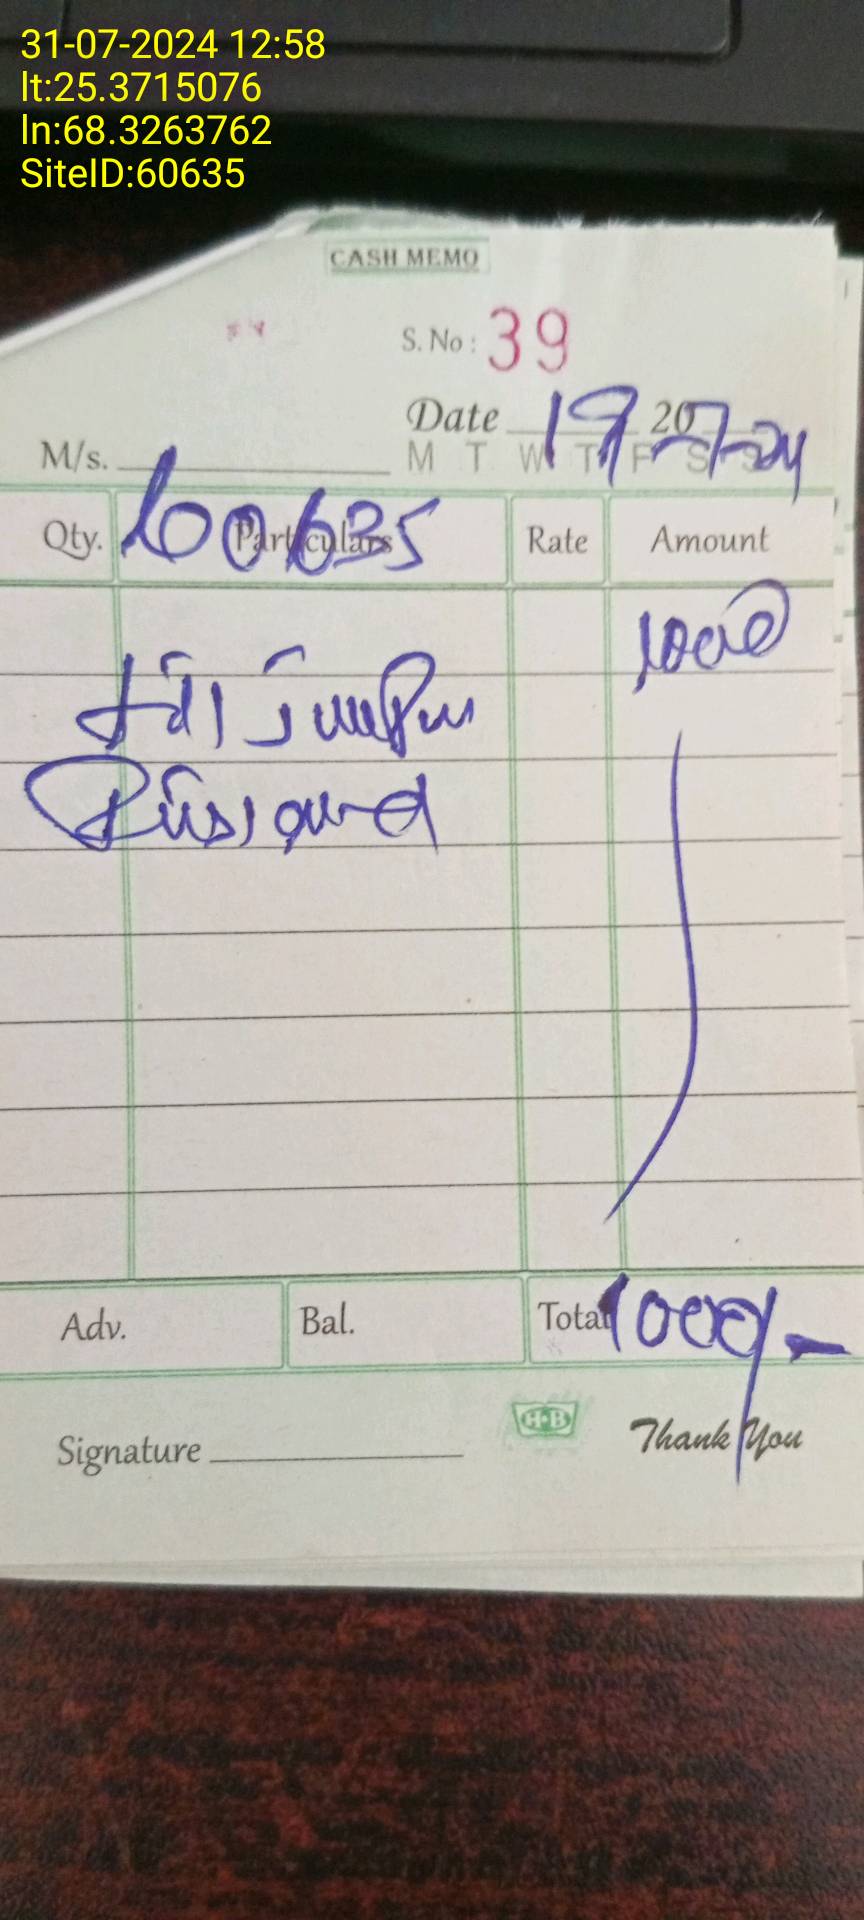 31-07-2024 12:58
lt:25.3715076
ln:68.3263762
SiteID:60635
CASH MEMO
S. No : 39
Date 19-7-24 20
M/s.
M T W T F S S
60635
Qty. Particulars Rate Amount
1000
Adv. Bal. Total 1000/-
Signature
H•B
Thank You